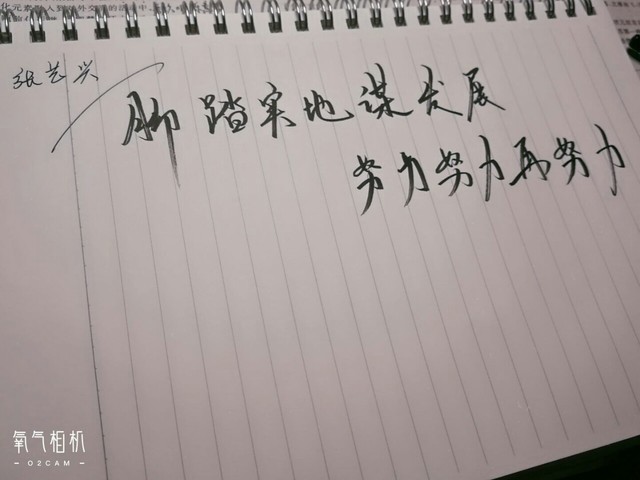 张艺兴
脚踏实地谋发展
努力努力再努力
氧气相机
- O2CAM -